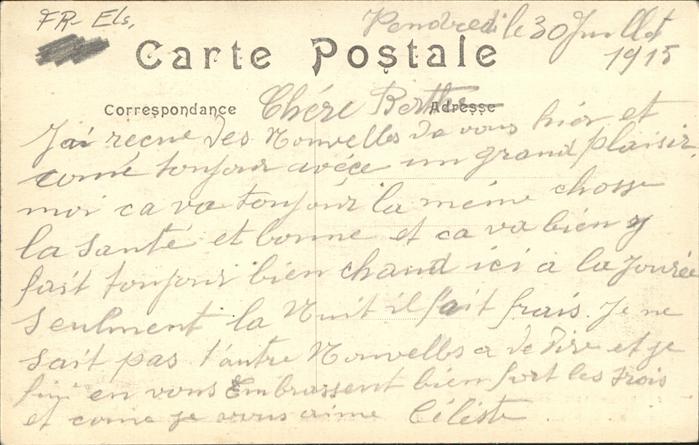 FR- Els,
Vendredi le 30 Juillet
1915
Carte Postale
Correspondance
Adresse
Chére Berthe
J'ai recue des Nouvelles de vous hier et
comé toujour avéce un grand plaisir,
moi ca va toujour la méme chosse
la santé et bonne et ca va bien y
fait toujour bien chaud ici a la Jourée
seulment la Nuit il fait frais. Je ne
sait pas t'autre Nouvelles a de dire et je
fini en vous Embrassent bien fort les trois
et come je vous aime Céleste